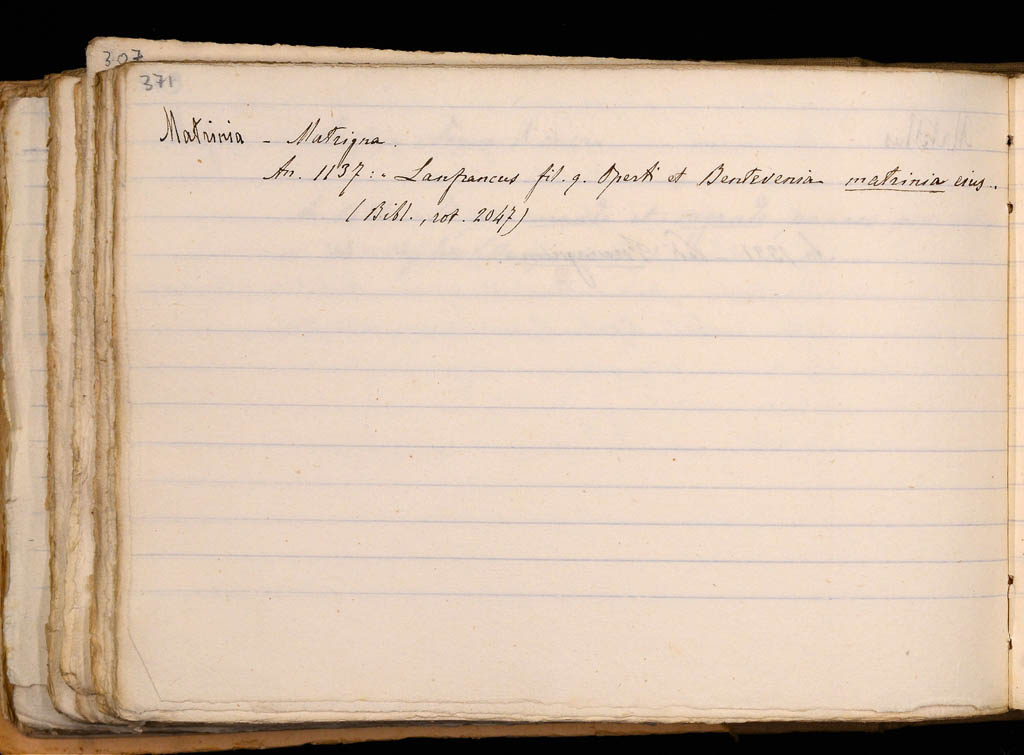 307
371
Matrinia - Matrigna.
An. 1137: " Lanfrancus fil. q. Operti et Bentevenia matrinia eius..
(Bibl., rot. 2047)